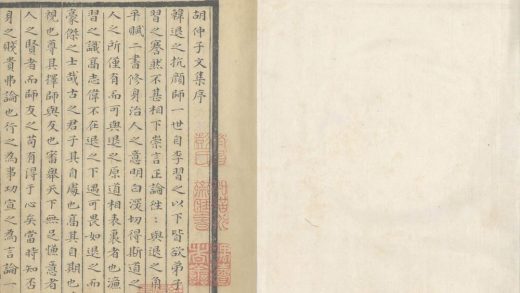 胡仲子文集序
韓退之抗顏師一世自李習之以下皆欲弟子
習之騫然不甚相下崇言正論往:與退之角
平賦二書修身治人之意明白深切得斯道之
人之所僅有而可與退之原道相表裏者也濂
習之識高志偉不在退之下遇可畏如退之而
豪傑之士哉古之君子其自處也高其自期也
視也尊其擇師與友也審舉天下無足慊意者
人之賢者而師友之苟有得于心矣當時知否
身之賤貴弗論也行之為事功宣之為言論一